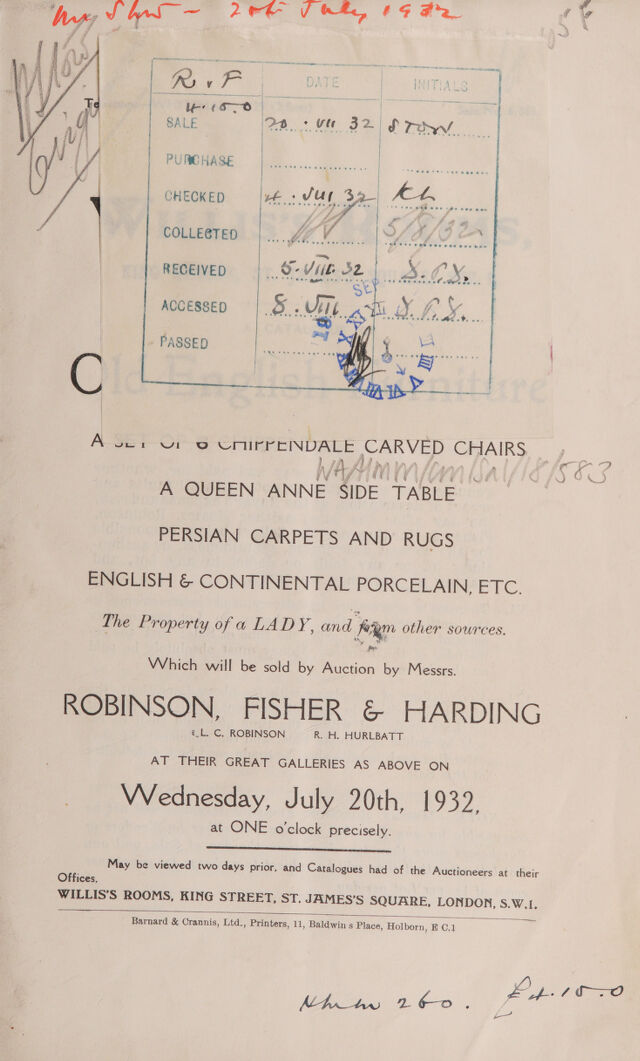 Mr Stow - 20th July 1932
R v F DATE INITIALS
4.15.0
SALE 20.VII 32 STOW
PURCHASE
CHECKED 4.VIII 32 KL
COLLECTED 5/8/32
RECEIVED 5.VIII.32
ACCESSED 8.VIII
PASSED
SEP
Old English Furniture
A SET OF 6 CHIPPENDALE CARVED CHAIRS
WA/HMM/CM/Sal/18/583
A QUEEN ANNE SIDE TABLE
PERSIAN CARPETS AND RUGS
ENGLISH & CONTINENTAL PORCELAIN, ETC.
The Property of a LADY, and from other sources.
Which will be sold by Auction by Messrs.
ROBINSON, FISHER & HARDING
L. C. ROBINSON R. H. HURLBATT
AT THEIR GREAT GALLERIES AS ABOVE ON
Wednesday, July 20th, 1932,
at ONE o'clock precisely.
May be viewed two days prior, and Catalogues had of the Auctioneers at their
Offices,
WILLIS'S ROOMS, KING STREET, ST. JAMES'S SQUARE, LONDON, S.W.1.
Barnard & Crannis, Ltd., Printers, 11, Baldwin s Place, Holborn, E C.1
260. £4.15.0